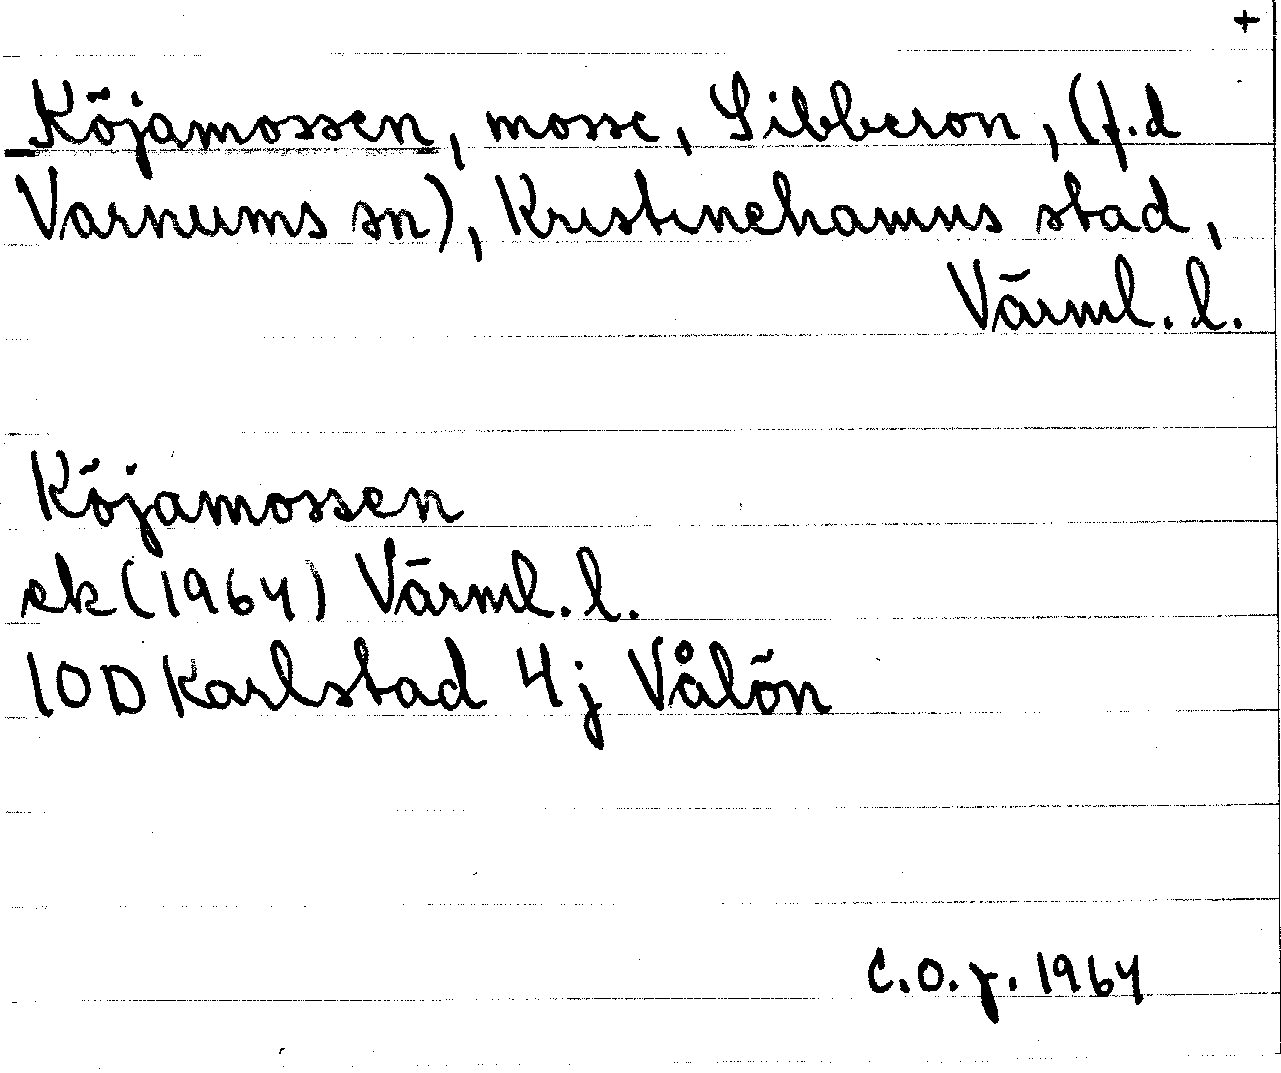 +
Köjamossen, mosse, Sibberön, (f.d
Varnums sn), Kristinehamns stad,
Värml. l.
Köjamossen
ek (1964) Värml. l.
10D Karlstad 4j Vålön
C.O.J. 1964